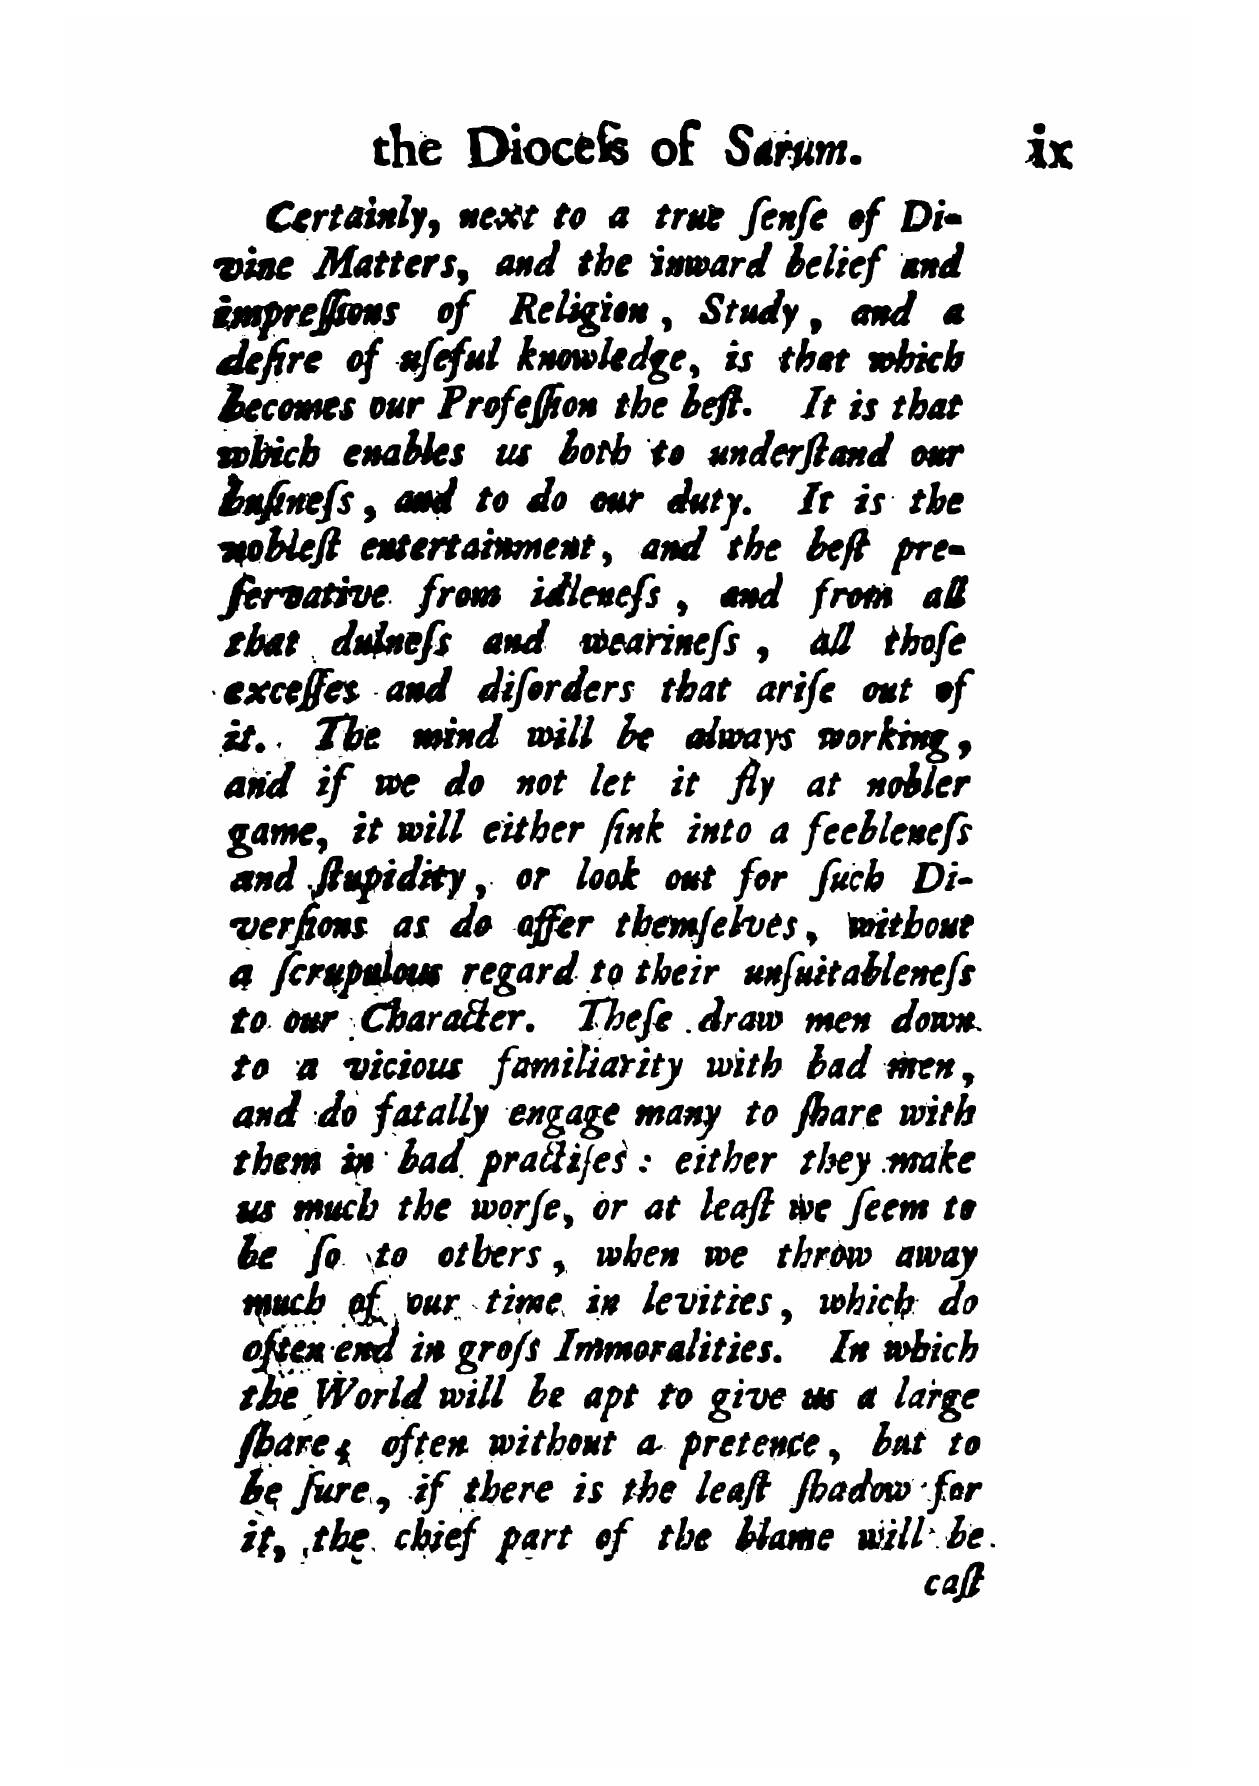 the Diocess of Sarum. ix
Certainly, next to a true ſenſe of Di-
vine Matters, and the inward belief and
impreſſions of Religion, Study, and a
deſire of uſeful knowledge, is that which
becomes our Profeſſion the beſt. It is that
which enables us both to underſtand our
buſineſs, and to do our duty. It is the
nobleſt entertainment, and the beſt pre-
ſervative from idleneſs, and from all
that dulneſs and wearineſs, all thoſe
exceſſes and diſorders that ariſe out of
it. The mind will be always working,
and if we do not let it fly at nobler
game, it will either ſink into a feebleneſs
and ſtupidity, or look out for ſuch Di-
verſions as do offer themſelves, without
a ſcrupulous regard to their unſuitableneſs
to our Character. Theſe draw men down
to a vicious familiarity with bad men,
and do fatally engage many to ſhare with
them in bad practiſes: either they make
us much the worſe, or at leaſt we ſeem to
be ſo to others, when we throw away
much of our time in levities, which do
often end in groſs Immoralities. In which
the World will be apt to give us a large
ſhare; often without a pretence, but to
be ſure, if there is the leaſt ſhadow for
it, the chief part of the blame will be
caſt